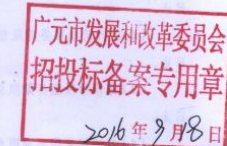 广元市发展和改革委员会
招投标备案专用章
2016年9月18日